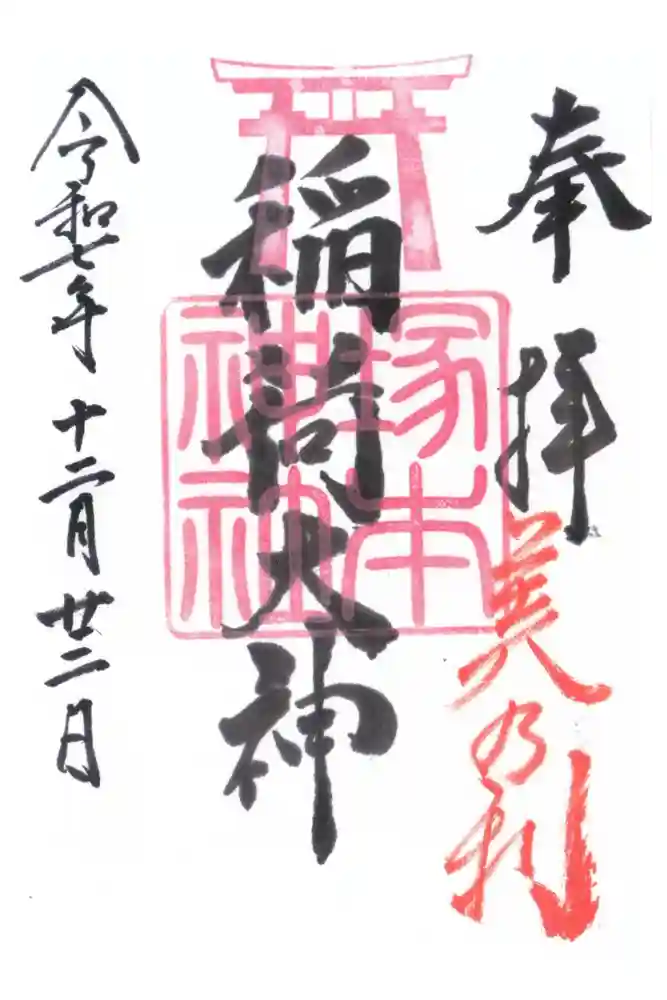 奉拝
美乃利
稲荷大神
塚本
神社
令和七年 十二月 廿二日